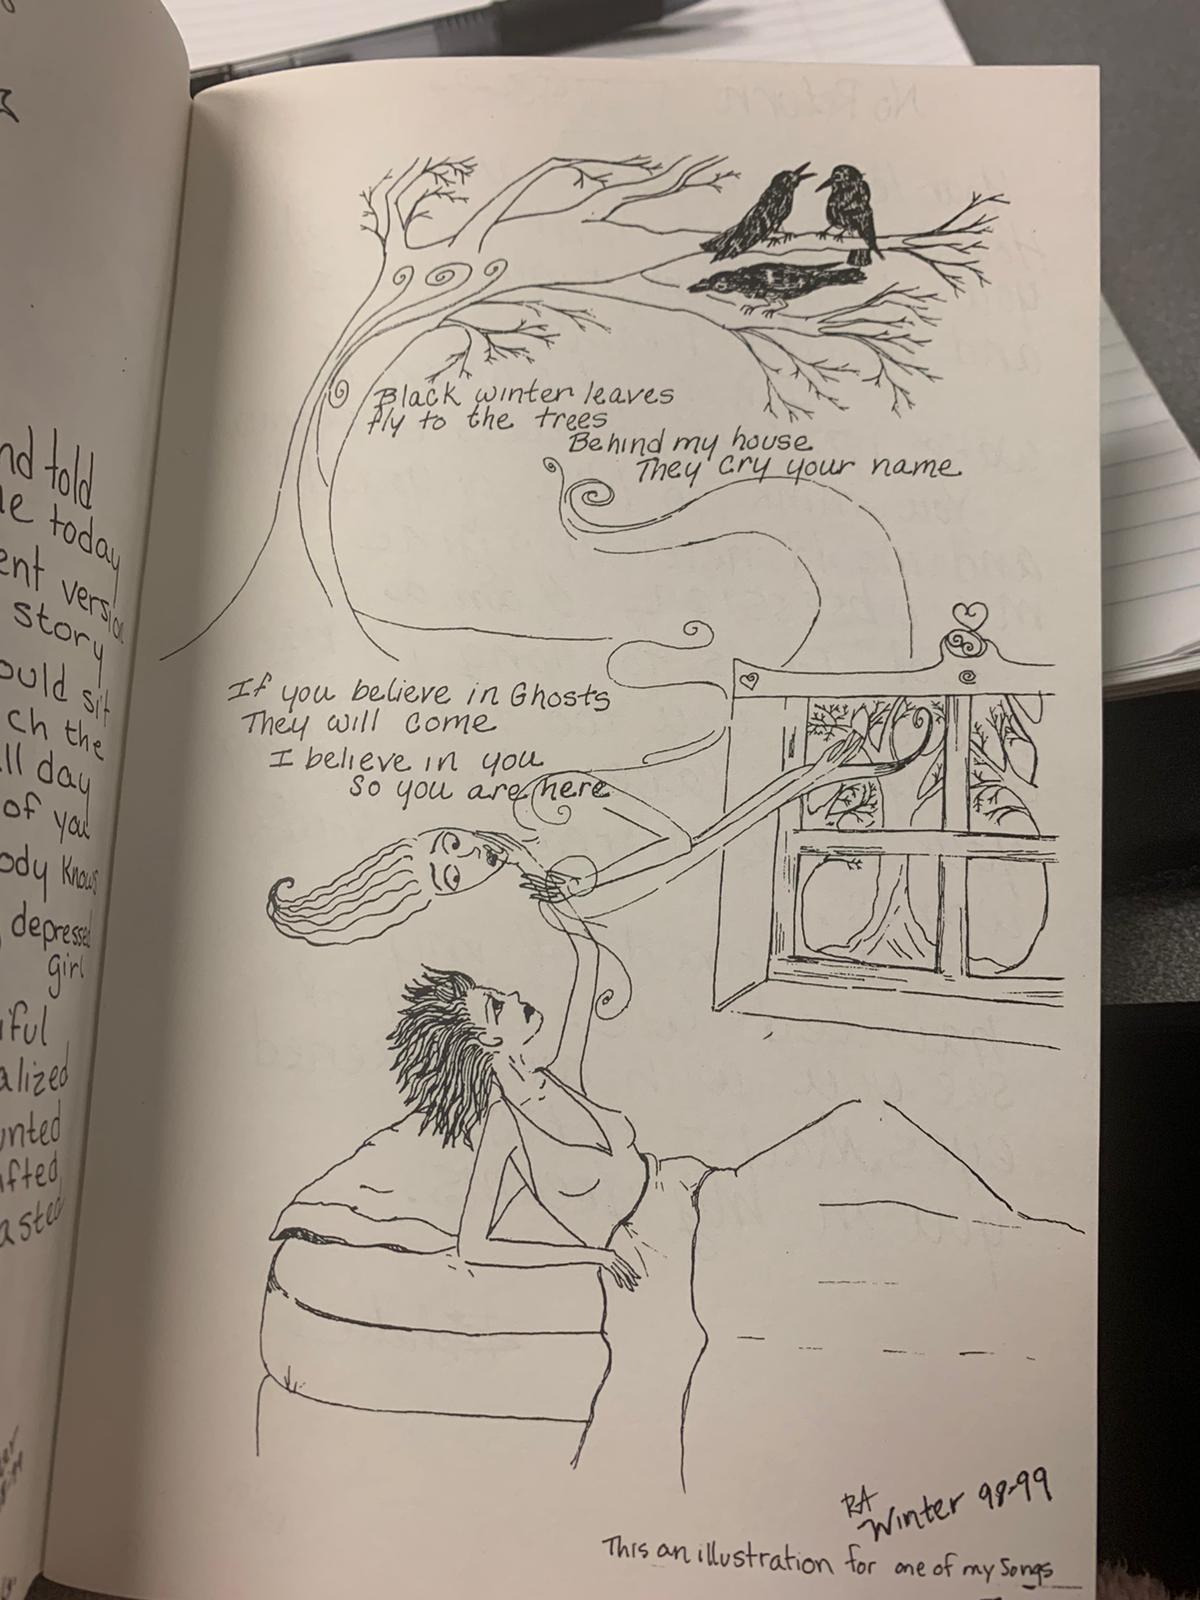 nd told
e today
ent version
story
ould sit
ch the
ll day
of you
ody knows
depressed
girl
iful
alized
unted
ifted
asted
Black winter leaves
fly to the trees
Behind my house
They cry your name
If you believe in Ghosts
They will come
I believe in you
So you are here
RA
Winter 98-99
This an illustration for one of my songs
No Return